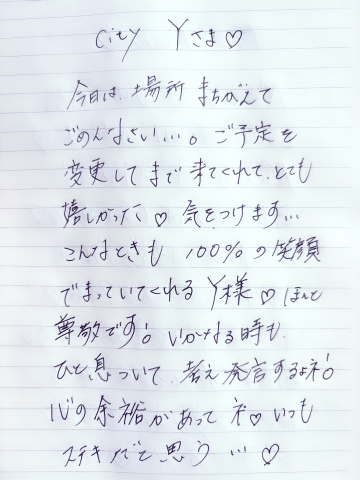 city Yさま♡
今日は、場所 まちがえて
ごめんなさい…。ご予定を
変更してまで 来てくれて、とても
嬉しかった♡ 気をつけます…
こんなときも 100%の笑顔
でまっていてくれる Y様♡ ほんと
尊敬です! いかなる時も
ひと息ついて、考え発言するよネ!
心の余裕があって ネ♡ いつも
ステキだと思う …♡